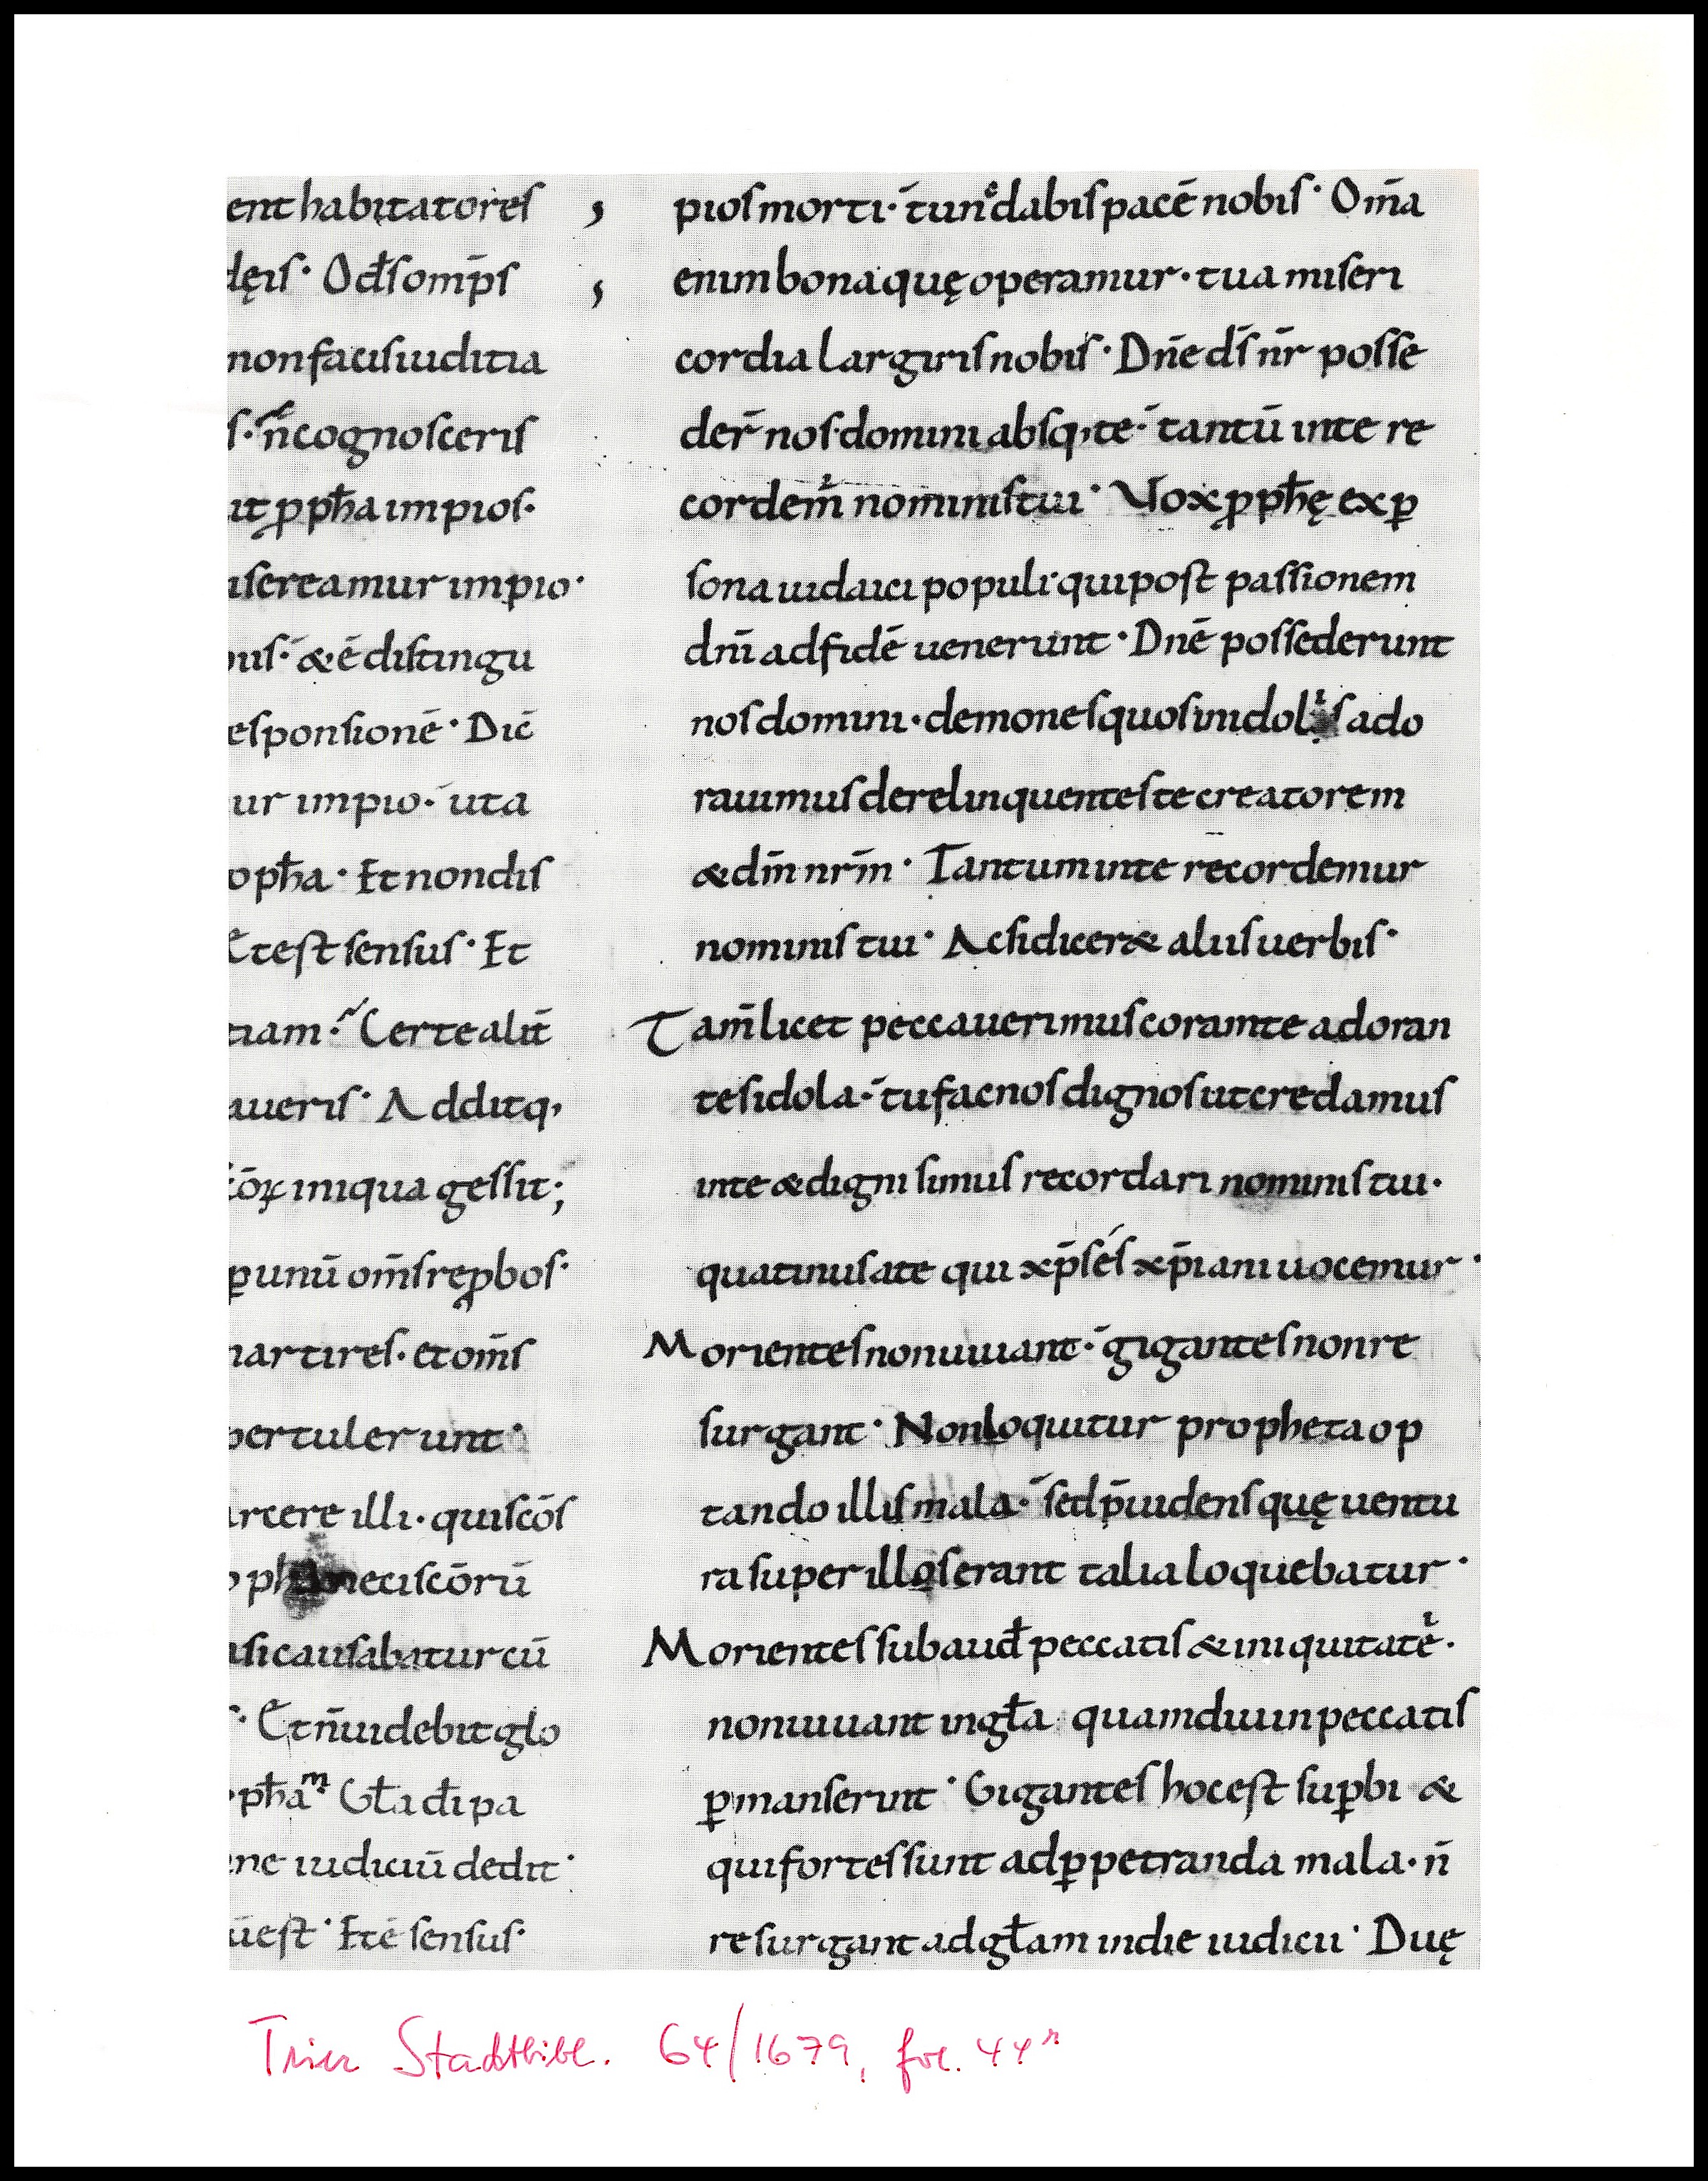 ent habitatores
dęis · Od̄s om̄ps
non facis iuditia
s · n̄ cognosceris
ut ꝓph̄a impios ·
isereamur impio ·
& ē distingu
esponsionē · Dic̄
ur impio · uta
oph̄a · Et non dis
Et est sensus · Et
tiam · Certe aliī
aueris · Additq,
iniqua gessit ;
ꝑ unū om̄s reꝓbos ·
martires · et om̄s
pertulerunt ·
arcere illi · qui sc̄os
nec isc̄orū
si causabatur cū
· Et n̄ uidebit glo
ph̄a m Gl̄a dī pa
iudiciū dedit ·
est · Et ē sensus ·
pios morti · tunc dabis pacē nobis · Om̄a
enim bona quę operamur · tua miseri
cordia largiris nobis · Dn̄e ds̄ nr̄ posse
der̄ nos domini absq, te · tantū in te re
cordem̄ nominis tui · Vox ꝓph̄ę ex ꝑ
sona iudaici populi qui post passionem
dn̄i ad fidē uenerunt · Dn̄e possederunt
nos domini · demones quos in idolis ado
rauimus derelinquentes te creatorem
& dm̄ nrm̄ · Tantum in te recordemur
nominis tui · Ac si dicer& aliis uerbis ·
Tam̄ licet peccauerimus coram te adoran
tes idola · tu fac nos dignos ut credamus
in te & digni simus recordari nominis tui ·
quatinus a te qui xp̄s es xp̄iani uocemur ·
Morientes non uiuant · gigantes non re
surgant · Non loquitur propheta op
tando illis mala · sed p̄uidens quę uentu
ra super illos erant talia loquebatur ·
Morientes subaud̄ peccatis & iniquitatē ·
non uiuant in gl̄a quamdiu in peccatis
ꝑmanserunt · Gigantes hoc est suꝑbi &
qui fortes sunt ad ꝑpetranda mala · n̄
resurgant ad gl̄am in die iudicii · Duę
Trier Stadtbibl. 64/1679, fol. 44r